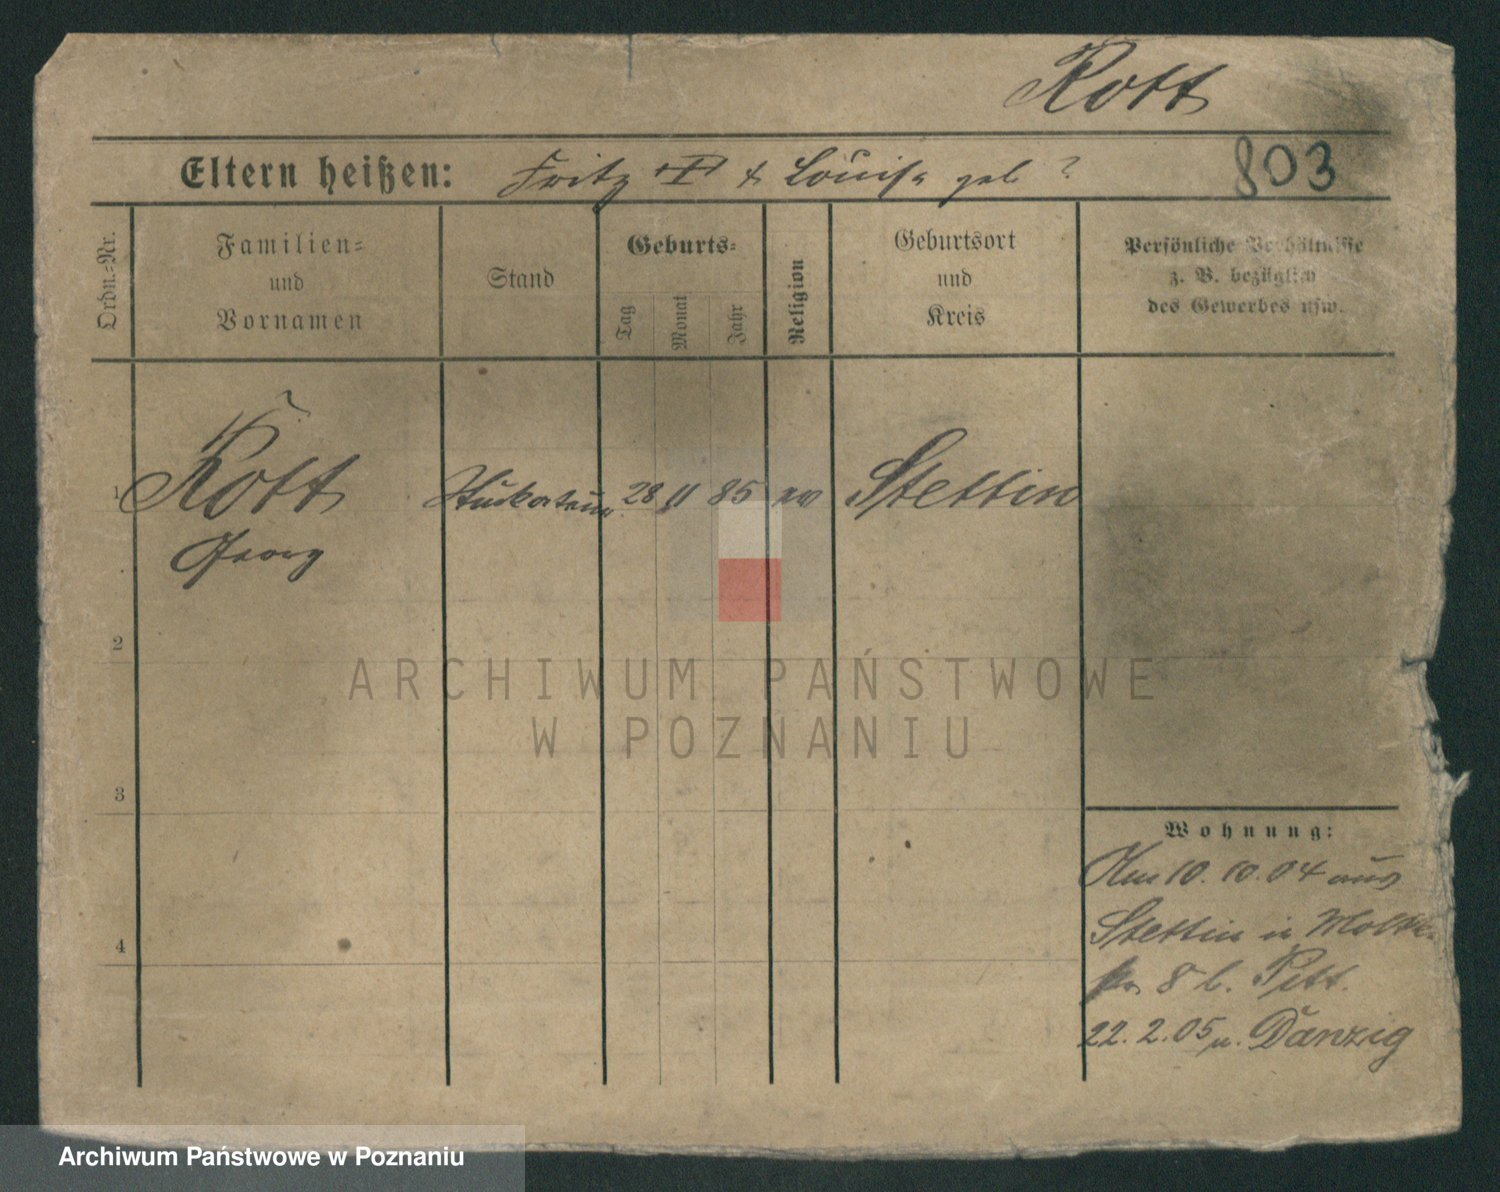 Rott
Eltern heißen: Fritz & Louise geb ?
803
Ordn.-Nr.
Familien-
und
Vornamen
Stand
Geburts-
Tag
Monat
Jahr
Religion
Geburtsort
und
Kreis
Persönliche Verhältnisse
z. B. bezüglich
des Gewerbes usw.
1
Rott
Georg
Stuckateur
28 11 85 ev
Stettin
2
ARCHIWUM PAŃSTWOWE
W POZNANIU
3
4
Wohnung:
Am 10. 10. 04 aus
Stettin in Moltke
str 8 b. Pett.
22. 2. 05 n. Danzig
Archiwum Państwowe w Poznaniu